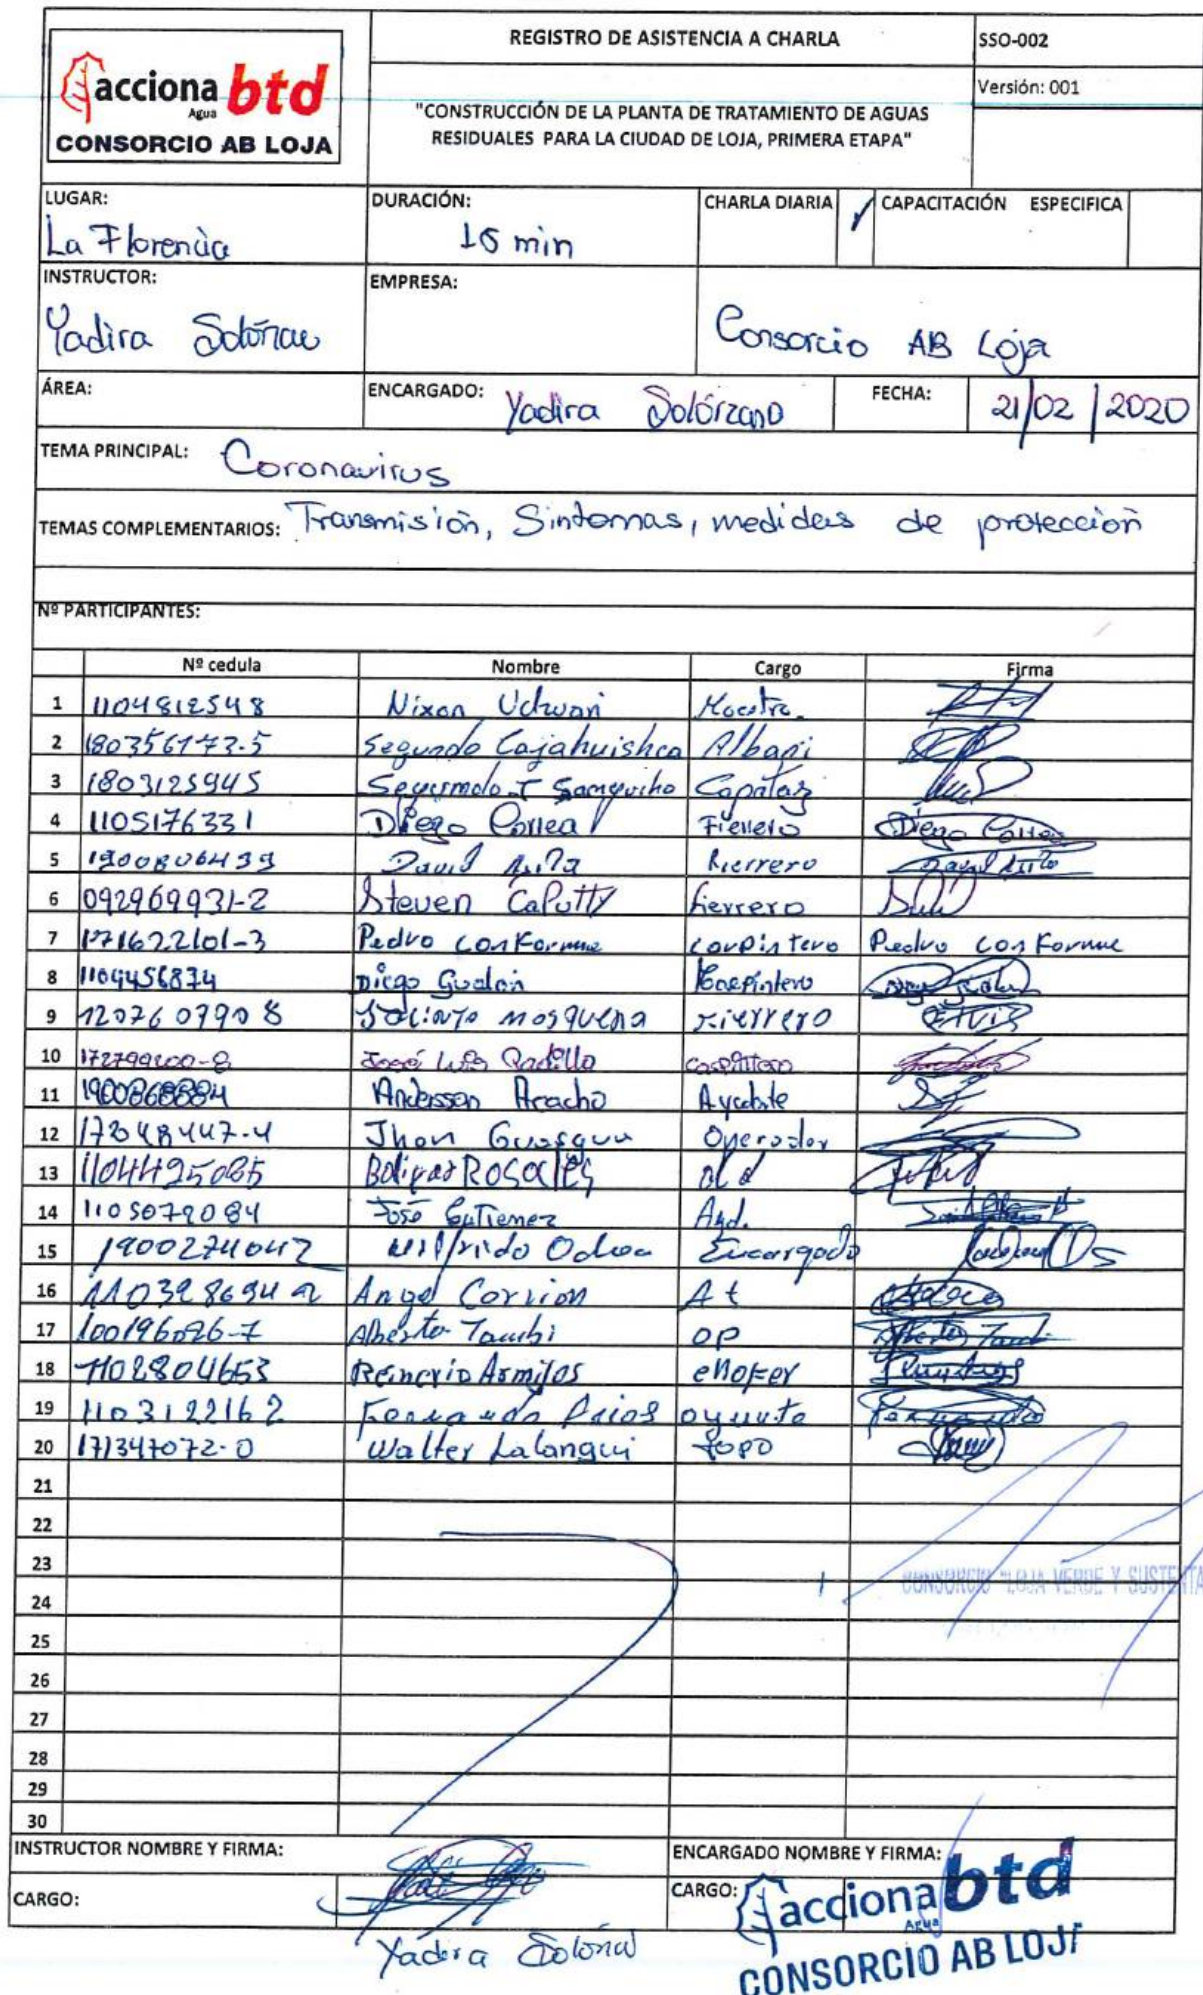 acciona btd
Agua
CONSORCIO AB LOJA
REGISTRO DE ASISTENCIA A CHARLA
SSO-002
Versión: 001
"CONSTRUCCIÓN DE LA PLANTA DE TRATAMIENTO DE AGUAS
RESIDUALES PARA LA CIUDAD DE LOJA, PRIMERA ETAPA"
LUGAR: La Florencia
DURACIÓN: 15 min
CHARLA DIARIA ✓ CAPACITACIÓN ESPECIFICA
INSTRUCTOR: Yadira
EMPRESA: Consorcio AB Loja
ÁREA:
ENCARGADO: Yadira Solórzano
FECHA: 21/02/2020
TEMA PRINCIPAL: Coronavirus
TEMAS COMPLEMENTARIOS: Transmisión, Sintomas, medidas de protección
Nº PARTICIPANTES:
Nº cedula Nombre Cargo Firma
1 1104812548 Nixon Maestro.
2 180356173-5 Segundo Cajahuishca Albañi
3 1803125945 Sangucho Capataz
4 1105176331 Diego Correa Fierrero Diego Correa
5 1900806439 David
6 092969931-2 Steven Caputty fierrero
7 171622101-3 Pedro Conforme carpintero Pedro Conforme
8 1104456874 Diego Gualán Carpintero
9 1207607908 mosquera fierrero
10 José Luis
11 Andersson Ayudante
12 Jhon Operador
13 Rosales
14 1105079084 José Gutierrez Ayd.
15 1900274042 Wilfrido Ochoa Encargado
16 Angel Carrion At
17 100196026-7 Alberto Tambi OP Alberto Tambi
18 1102804653 Reinerio Armijos chofer
19 1103122162 Fernando
20 171347072-0 Walter Lalangui topo
21
22
23
24
25
26
27
28
29
30
CONSORCIO "LOJA VERDE Y
INSTRUCTOR NOMBRE Y FIRMA:
ENCARGADO NOMBRE Y FIRMA:
CARGO:
CARGO:
Yadira
acciona btd
Agua
CONSORCIO AB LOJA